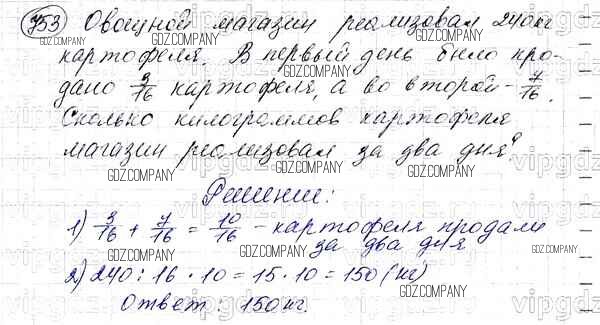 753 Овощной магазин реализовал 240 кг
картофеля. В первый день было про-
дано 3/16 картофеля, а во второй - 7/16.
Сколько килограммов картофеля
магазин реализовал за два дня?
Решение:
1) 3/16 + 7/16 = 10/16 - картофеля продали
за два дня
2) 240 : 16 · 10 = 15 · 10 = 150 (кг)
Ответ: 150 кг.